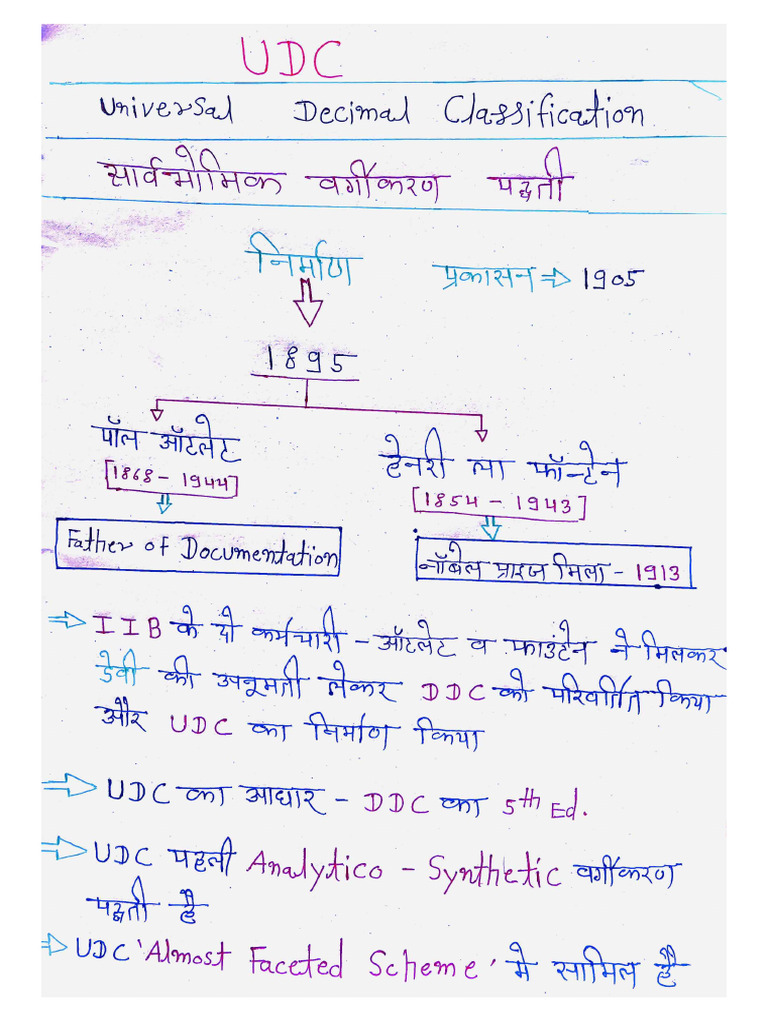 UDC
Universal Decimal Classification
सार्वभौमिक वर्गीकरण पद्धती
निर्माण
प्रकासन ⇒ 1905
1895
पॉल ऑटलेट
[1868 - 1944]
Father of Documentation
हेनरी ला फॉन्टेन
[1854 - 1943]
नॉबेल प्राइज मिला - 1913
⇒ IIB के दो कर्मचारी - ऑटलेट व फाउंटेन ने मिलकर
डेवी की उपनूमती लेकर DDC को परिवर्तित किया
और UDC का निर्माण किया
⇒ UDC का आधार - DDC का 5th Ed.
⇒ UDC पहली Analytico - Synthetic वर्गीकरण
पद्धती है
⇒ UDC 'Almost Faceted Scheme' मे सामिल है